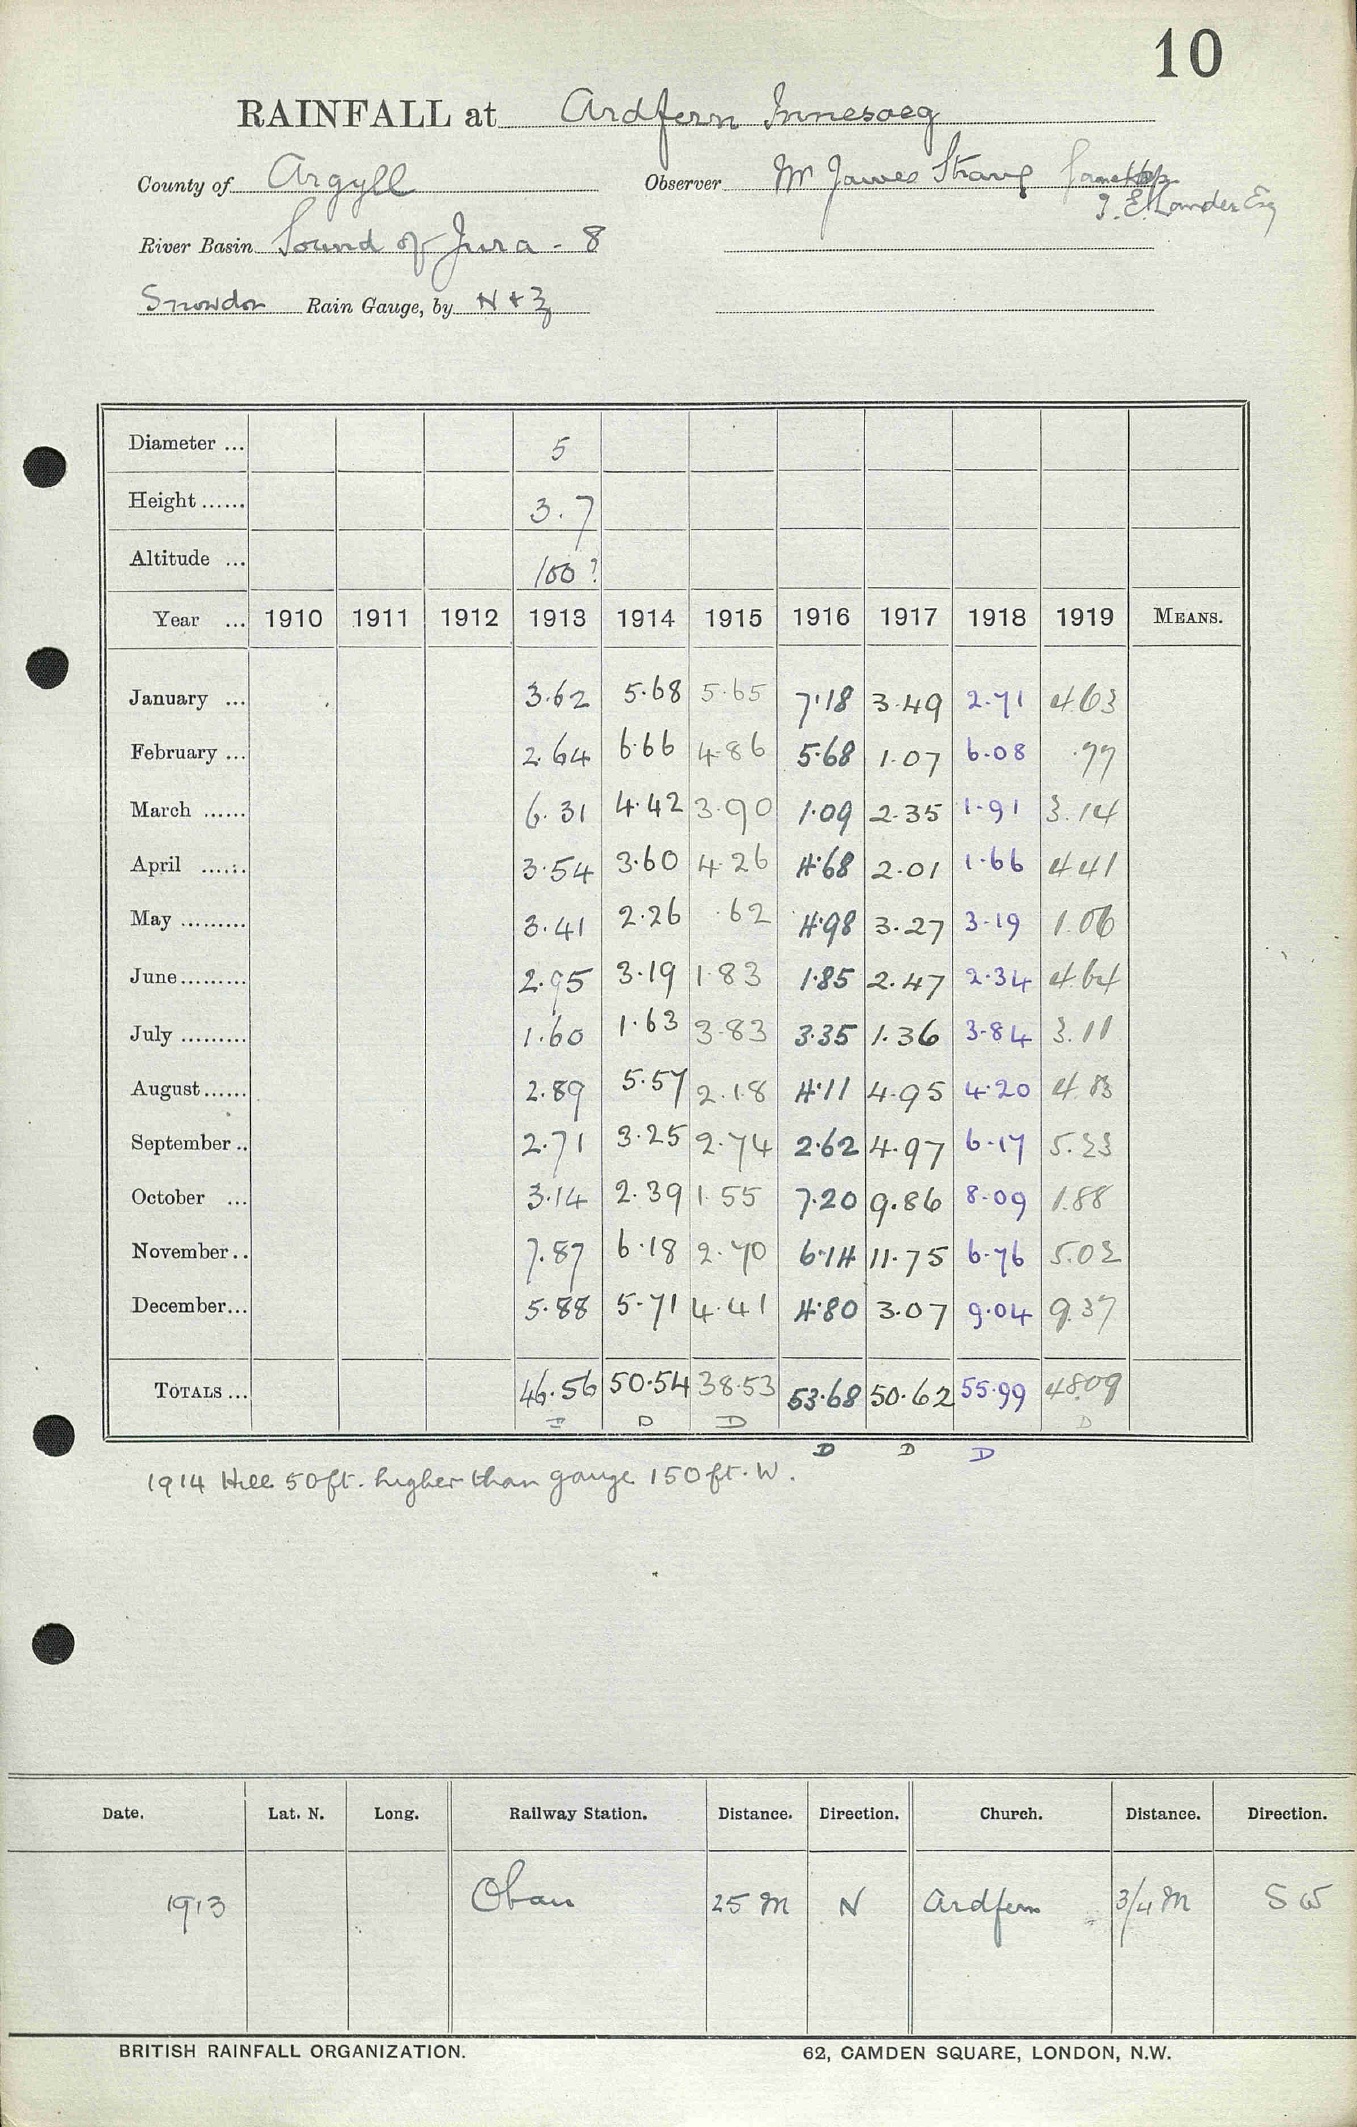 10
RAINFALL at Ardfern Innesaeg
County of Argyll Observer Mr James Strang for
T. E. Lander Esq
River Basin Sound of Jura - 8
Snowdon Rain Gauge, by N + Z
Diameter ... 5
Height ...... 3.7
Altitude ... 100?
Year ... 1910 1911 1912 1913 1914 1915 1916 1917 1918 1919 MEANS.
January ... 3.62 5.68 5.65 7.18 3.49 2.71 4.63
February ... 2.64 6.66 4.86 5.68 1.07 6.08 .77
March ...... 6.31 4.42 3.90 1.09 2.35 1.91 3.14
April ...... 3.54 3.60 4.26 4.68 2.01 1.66 4.41
May ......... 3.41 2.26 .62 4.98 3.27 3.19 1.06
June ......... 2.95 3.19 1.83 1.85 2.47 2.34 4.64
July ......... 1.60 1.63 3.83 3.35 1.36 3.84 3.11
August ...... 2.89 5.57 2.18 4.11 4.95 4.20 4.83
September .. 2.71 3.25 2.74 2.62 4.97 6.17 5.23
October ... 3.14 2.39 1.55 7.20 9.86 8.09 1.88
November .. 7.87 6.18 2.70 6.14 11.75 6.76 5.02
December ... 5.88 5.71 4.41 4.80 3.07 9.04 9.37
TOTALS ... 46.56 50.54 38.53 53.68 50.62 55.99 48.09
D D D
D D D
1914 Hill 50ft. higher than gauge 150ft. W.
Date. Lat. N. Long. Railway Station. Distance. Direction. Church. Distance. Direction.
1913 Oban 25 M N Ardfern 3/4 M SW
BRITISH RAINFALL ORGANIZATION. 62, CAMDEN SQUARE, LONDON, N.W.